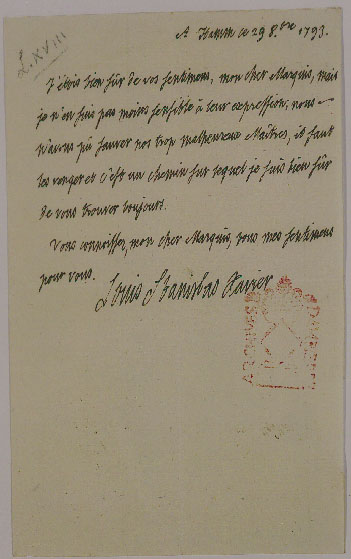 L. XVIII
A Hamm ce 29 8.bre 1793.
J'étois bien sûr de vos sentimens, mon cher Marquis, mais
je n'en suis pas moins sensible à leur expression; nous
n'avons pû sauver nos trop malheureux Maîtres, il faut
les vanger et c'est un chemin sur lequel je suis bien sûr
de vous trouver toujours.
Vous connoissez, mon cher Marquis, tous mes sentimens
pour vous.
Louis Stanislas Xavier